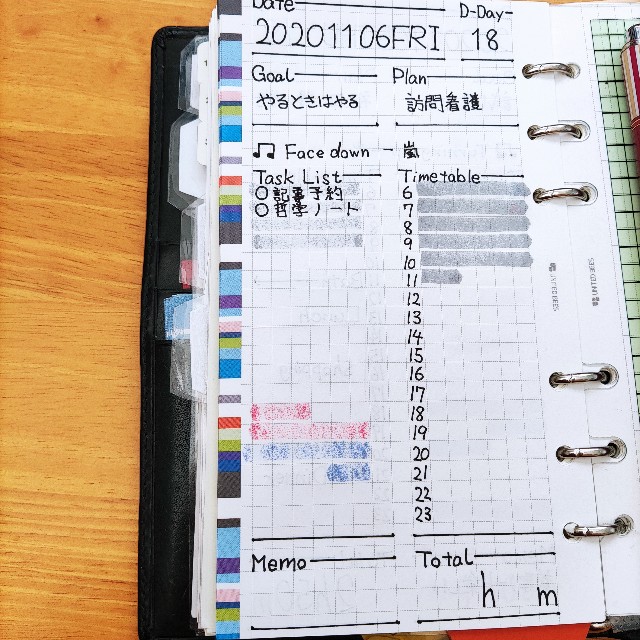 Date
D-Day
20201106FRI
18
Goal
Plan
やるときはやる
訪問看護
♫ Face down - 嵐
Task List
Timetable
○記事予約
○哲学ノート
6
7
8
9
10
11
12
13
14
15
16
17
18
19
20
21
22
23
Memo
Total
h m
UNITED BEES